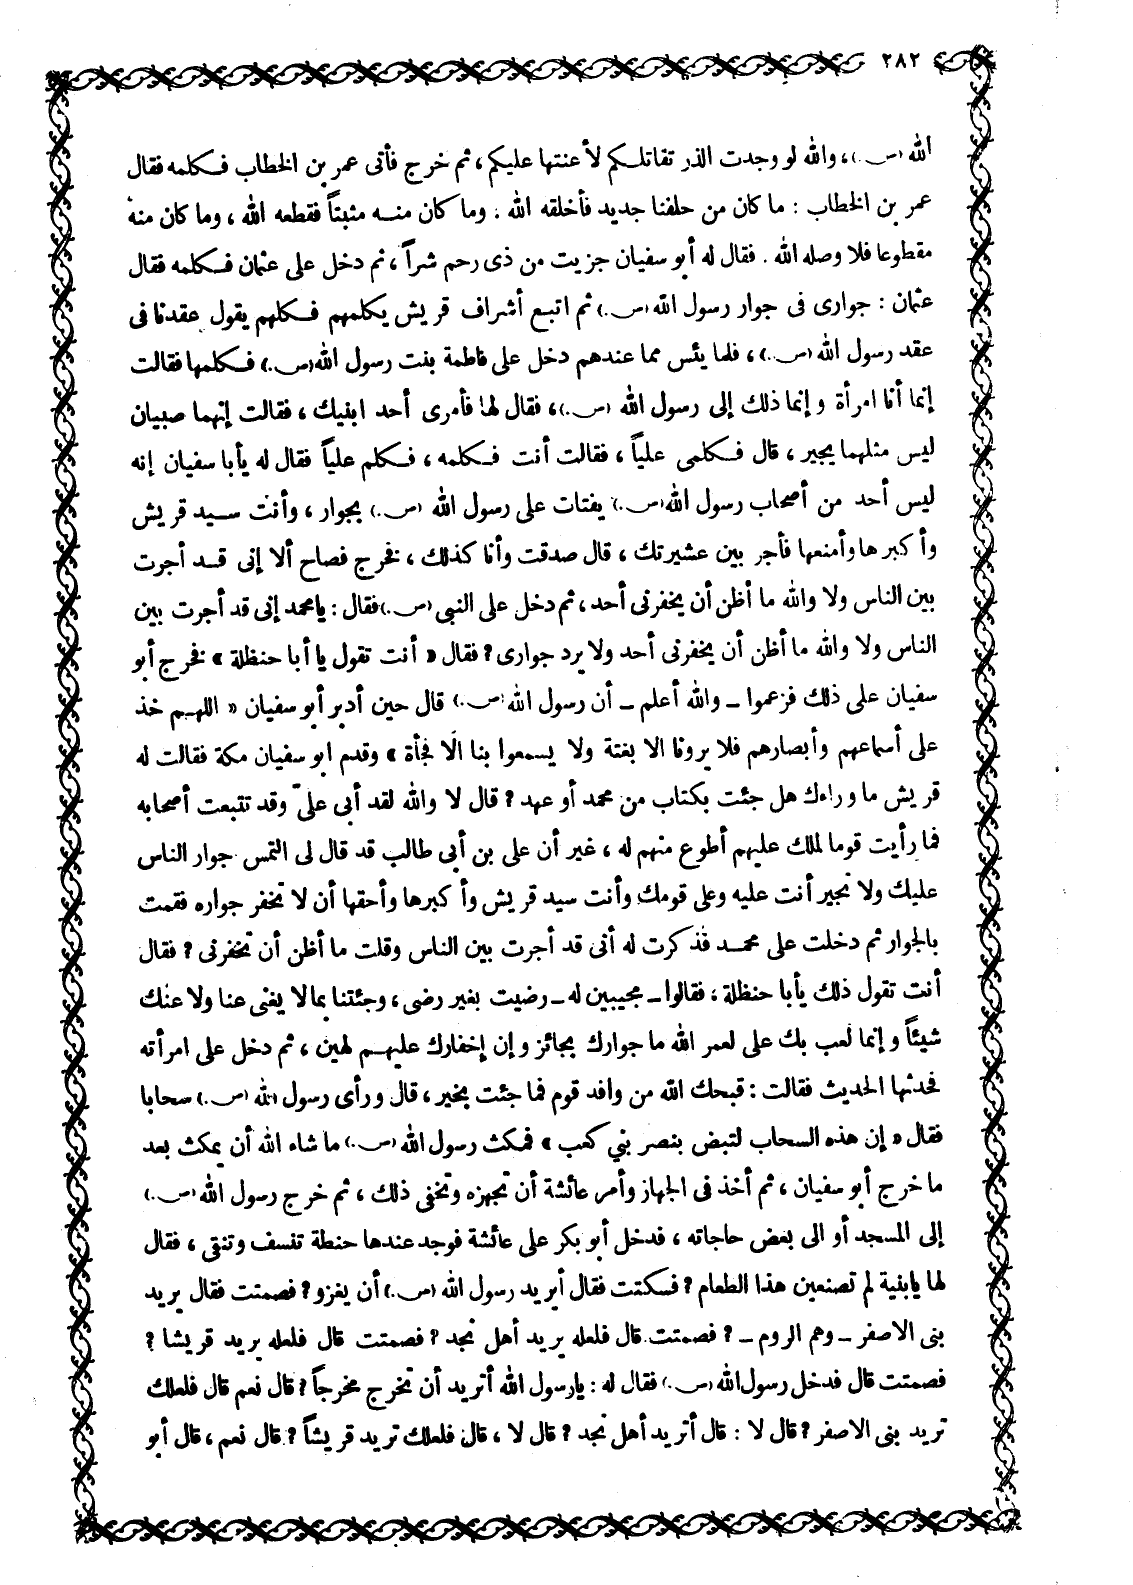 ٢٨٢
الله (ص.)، والله لو وجدت الذر تقاتلكم لأعنتها عليكم، ثم خرج فأتى عمر بن الخطاب فكلمه فقال
عمر بن الخطاب : ما كان من حلفنا جديد فأخلقه الله . وما كان منه مثبتاً فقطعه الله ، وما كان منه
مقطوعا فلا وصله الله . فقال له أبو سفيان جزيت من ذى رحم شراً ، ثم دخل على عثمان فكلمه فقال
عثمان : جوارى فى جوار رسول الله (ص.) ثم اتبع أشراف قريش يكلمهم فكلهم يقول عقدنا فى
عقد رسول الله (ص.)، فلما يئس مما عندهم دخل على فاطمة بنت رسول الله (ص.) فكلمها فقالت
إنما أنا امرأة وإنما ذلك إلى رسول الله (ص.)، فقال لها فأمرى أحد ابنيك ، فقالت إنهما صبيان
ليس مثلهما يجير ، قال فكلمى علياً ، فقالت أنت فكلمه ، فكلم علياً فقال له يأبا سفيان إنه
ليس أحد من أصحاب رسول الله (ص.) يفتات على رسول الله (ص.) بجوار ، وأنت سيد قريش
وأكبرها وأمنعها فأجر بين عشيرتك ، قال صدقت وأنا كذلك ، فخرج فصاح ألا إنى قد أجرت
بين الناس ولا والله ما أظن أن يخفرنى أحد ، ثم دخل على النبى (ص.) فقال : يا محمد إنى قد أجرت بين
الناس ولا والله ما أظن أن يخفرنى أحد ولا يرد جوارى ? فقال « أنت تقول يا أبا حنظلة » فخرج أبو
سفيان على ذلك فزعموا ـ والله أعلم ـ أن رسول الله (ص.) قال حين أدبر أبو سفيان « اللهم خذ
على أسماعهم وأبصارهم فلا يرونا الا بغتة ولا يسمعوا بنا الا فجأة » وقدم ابو سفيان مكة فقالت له
قريش ما وراءك هل جئت بكتاب من محمد أو عهد ? قال لا والله لقد أبى علىّ وقد تتبعت أصحابه
فما رأيت قوما لملك عليهم أطوع منهم له ، غير أن على بن أبي طالب قد قال لى التمس جوار الناس
عليك ولا تجير أنت عليه وعلى قومك وأنت سيد قريش وأكبرها وأحقها أن لا تخفر جواره فقمت
بالجوار ثم دخلت على محمد فذكرت له أنى قد أجرت بين الناس وقلت ما أظن أن تخفرنى ? فقال
أنت تقول ذلك يأبا حنظلة ، فقالوا ـ مجيبين له ـ رضيت بغير رضى ، وجئتنا بما لا يغنى عنا ولا عنك
شيئاً وإنما لعب بك على لعمر الله ما جوارك بجائز وإن إخفارك عليهم لهين ، ثم دخل على امرأته
فحدثها الحديث فقالت : قبحك الله من وافد قوم فما جئت بخير ، قال ورأى رسول الله (ص.) سحابا
فقال « إن هذه السحاب لتبض بنصر بني كعب » فمكث رسول الله (ص.) ما شاء الله أن يمكث بعد
ما خرج أبو سفيان ، ثم أخذ فى الجهاز وأمر عائشة أن تجهزه وتخفى ذلك ، ثم خرج رسول الله (ص.)
إلى المسجد أو الى بعض حاجاته ، فدخل أبو بكر على عائشة فوجد عندها حنطة تنسف وتنقى ، فقال
لها يا بنية لم تصنعين هذا الطعام ? فسكتت فقال أيريد رسول الله (ص.) أن يغزو ? فصمتت فقال يريد
بنى الاصفر ـ وهم الروم ـ ? فصمتت قال فلعله يريد أهل نجد ? فصمتت قال فلعله يريد قريشا ?
فصمتت قال فدخل رسول الله (ص.) فقال له : يا رسول الله أتريد أن تخرج مخرجاً ? قال نعم قال فلعلك
تريد بنى الاصفر ? قال لا : قال أتريد أهل نجد ? قال لا ، قال فلعلك تريد قريشاً ? قال نعم ، قال أبو